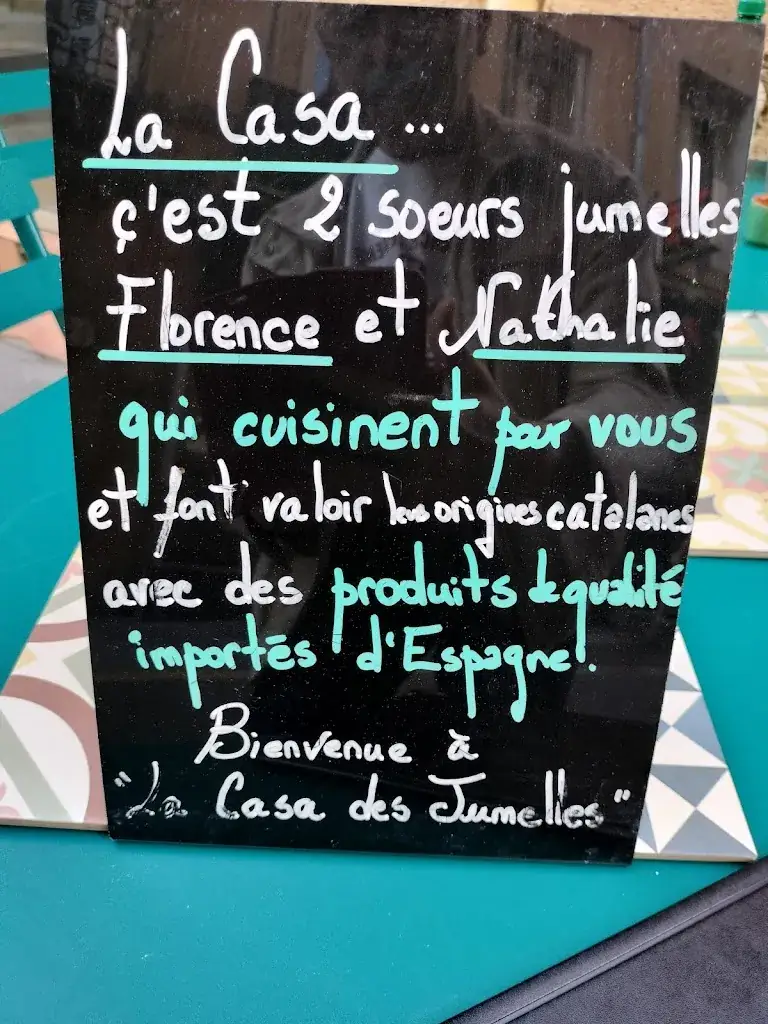 La Casa ...
c'est 2 soeurs jumelles
Florence et Nathalie
qui cuisinent pour vous
et font valoir leurs origines catalanes
avec des produits de qualité
importés d'Espagne.
Bienvenue à
"La Casa des Jumelles"